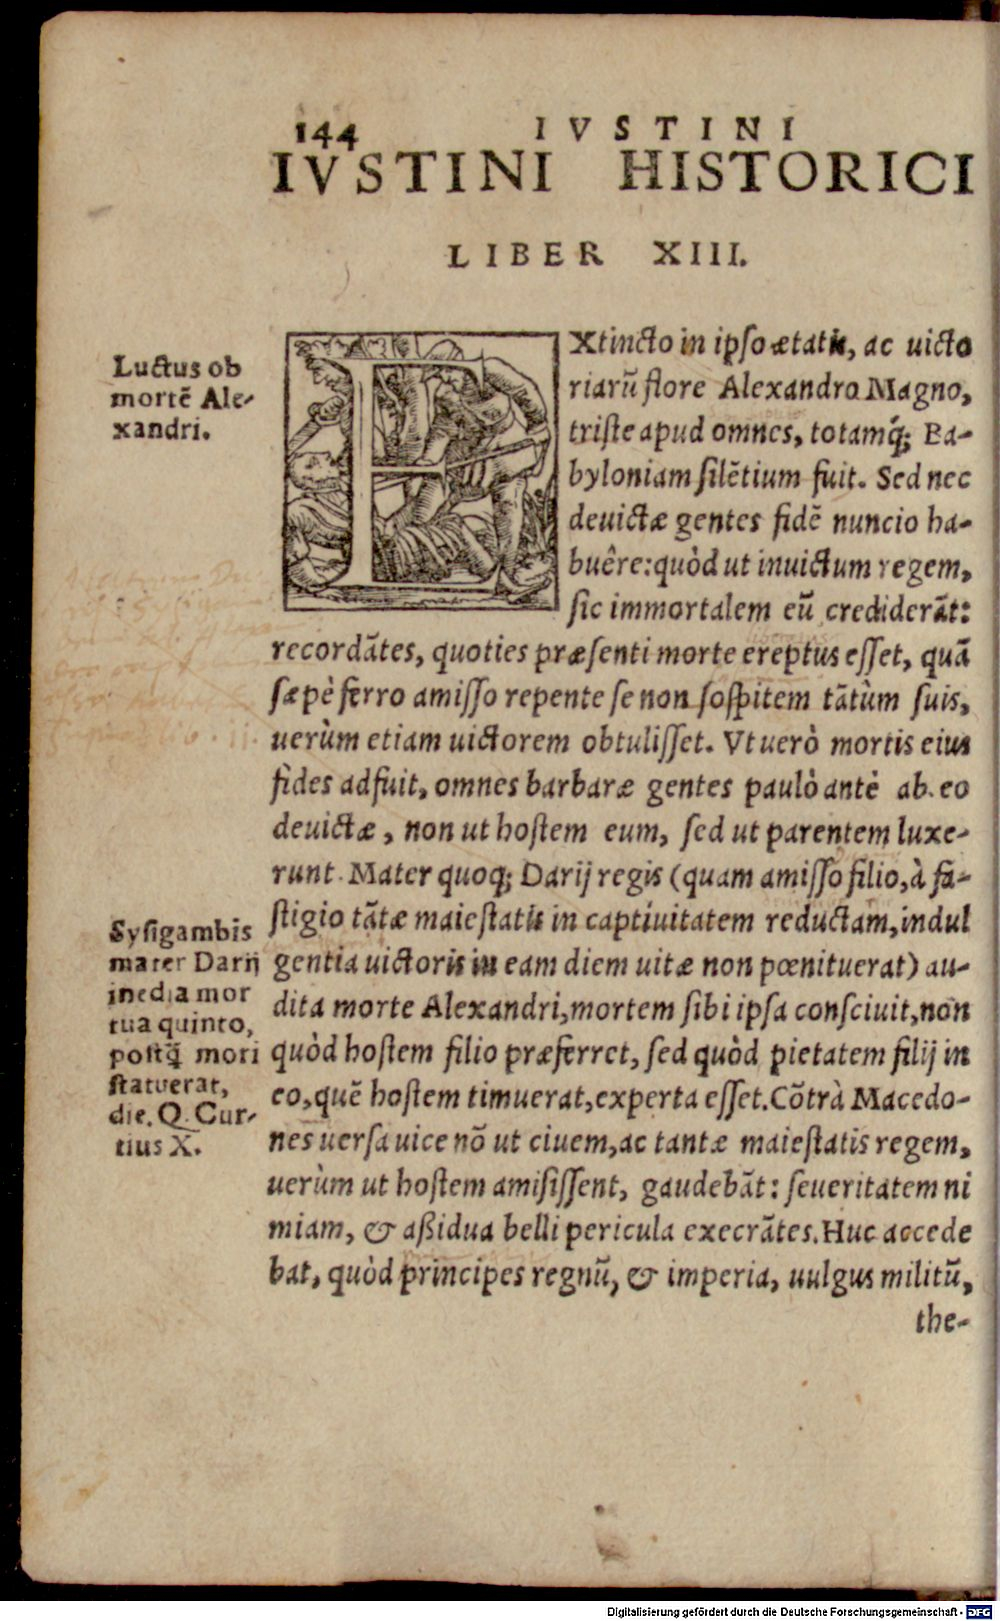 144 IVSTINI
IVSTINI HISTORICI
LIBER XIII.
Luctus ob
mortẽ Ale-
xandri.
EXtincto in ipso ætatis, ac uicto
riarũ flore Alexandro Magno,
triste apud omnes, totamq́; Ba-
byloniam silẽtium fuit. Sed nec
deuictæ gentes fidẽ nuncio ha-
buêre: quòd ut inuictum regem,
sic immortalem eũ crediderãt:
recordãtes, quoties præsenti morte ereptus esset, quã
sæpè ferro amisso repente se non sospitem tãtùm suis,
uerùm etiam uictorem obtulisset. Vt uerò mortis eius
fides adfuit, omnes barbaræ gentes paulò antè ab eo
deuictæ, non ut hostem eum, sed ut parentem luxe-
runt. Mater quoq; Darij regis (quam amisso filio, à fa-
stigio tãtæ maiestatis in captiuitatem reductam, indul
gentia uictoris in eam diem uitæ non pœnituerat) au-
dita morte Alexandri, mortem sibi ipsa consciuit, non
quòd hostem filio præferret, sed quòd pietatem filij in
eo, quẽ hostem timuerat, experta esset. Cõtrà Macedo-
nes uersa uice nõ ut ciuem, ac tantæ maiestatis regem,
uerùm ut hostem amisissent, gaudebãt: seueritatem ni
miam, & aßidua belli pericula execrãtes. Huc accede
bat, quòd principes regnũ, & imperia, uulgus militũ,
the-
Sysigambis
mater Darij
inedia mor
tua quinto,
postq̃ mori
statuerat,
die. Q. Cur-
tius X.
Digitalisierung gefördert durch die Deutsche Forschungsgemeinschaft - DFG